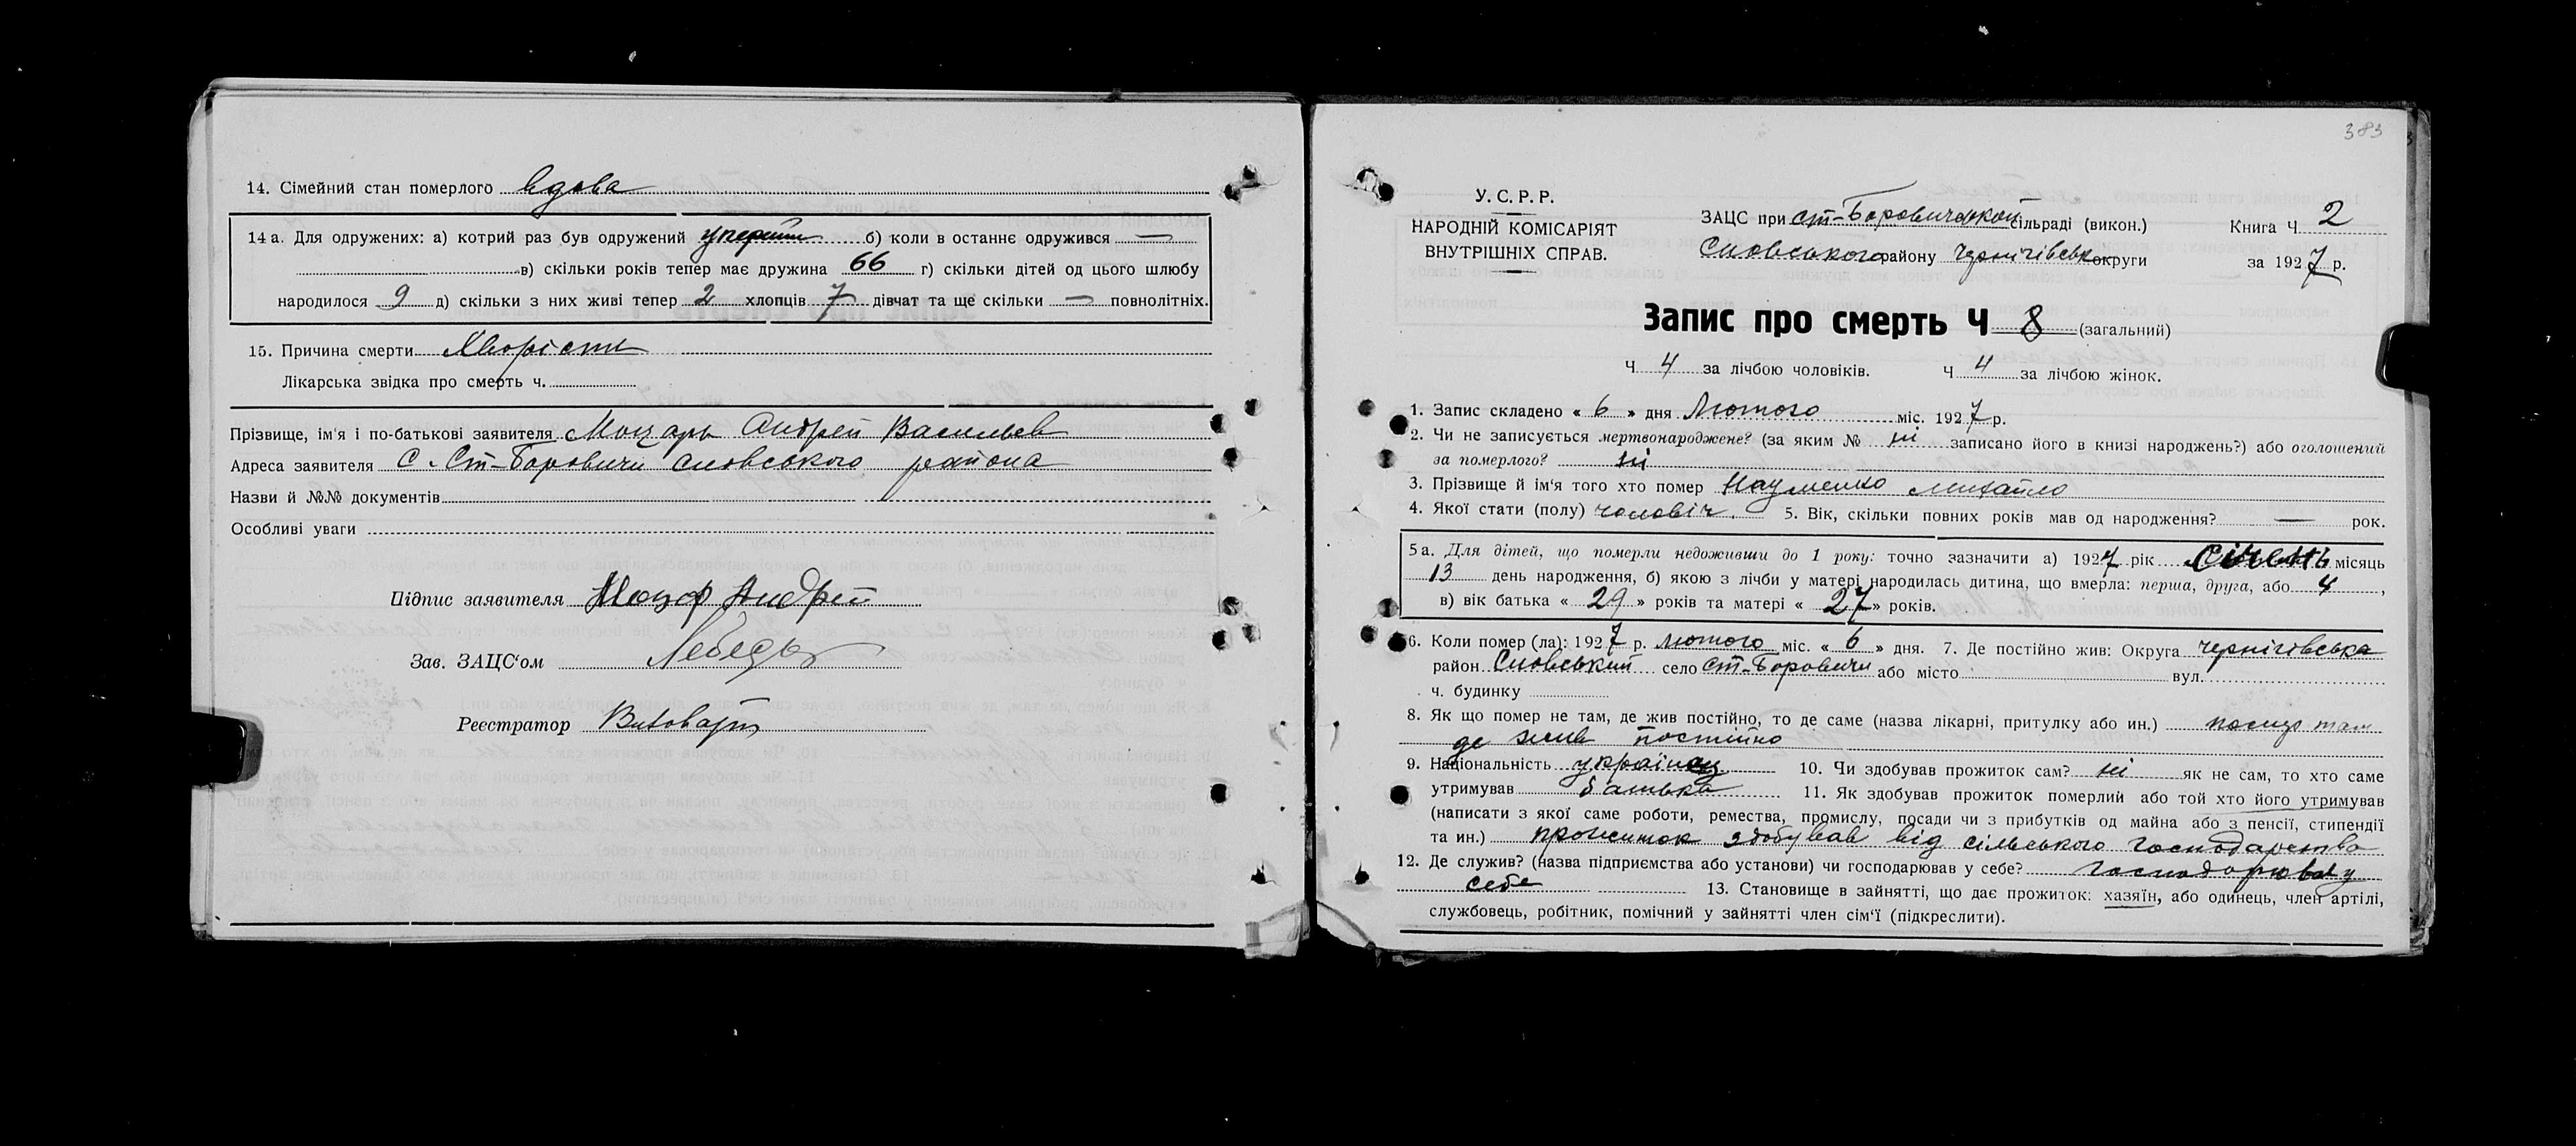 14. Сімейний стан померлого вдова
14 а. Для одружених: а) котрий раз був одружений уперше б) коли в останнє одружився —
в) скільки років тепер має дружина 66 г) скільки дітей од цього шлюбу
народилося 9 д) скільки з них живі тепер 2 хлопців 7 дівчат та ще скільки — повнолітніх.
15. Причина смерти
Лікарська звідка про смерть ч.
Прізвище, ім'я і по-батькові заявителя Моцарь Андрей Васильев
Адреса заявителя С. Ст-Боровичи Сновського района
Назви й №№ документів
Особліві уваги
Підпис заявителя Моцар Андрей
Зав. ЗАЦС'ом Лебедь
Реєстратор
383
У. С. Р. Р.
НАРОДНІЙ КОМІСАРІЯТ
ВНУТРІШНІХ СПРАВ.
ЗАЦС при ст-Боровичськой сільраді (викон.)
Сновського району Чернігівськ округи
Книга Ч 2
за 1927 р.
Запис про смерть Ч 8 (загальний)
Ч 4 за лічбою чоловіків. Ч 4 за лічбою жінок.
1. Запис складено « 6 » дня Лютого міс. 1927 р.
2. Чи не записується мертвонароджене? (за яким № ні записано його в книзі народжень?) або оголошений
за померлого? ні
3. Прізвище й ім'я того хто помер Науменко Михайло
4. Якої стати (полу) чоловіч. 5. Вік, скільки повних років мав од народження? — рок.
5 а. Для дітей, що померли недоживши до 1 року: точно зазначити а) 1927 рік Січень місяць
13 день народження, б) якою з лічби у матері народилась дитина, що вмерла: перша, друга, або 4,
в) вік батька « 29 » років та матері « 27 » років.
6. Коли помер (ла): 1927 р. лютого міс. « 6 » дня. 7. Де постійно жив: Округа Чернігівська
район Сновський село ст-Боровичи або місто вул.
ч. будинку
8. Як що помер не там, де жив постійно, то де саме (назва лікарні, притулку або ин.) помер там
де жив постійно
9. Національність українец 10. Чи здобував прожиток сам? ні як не сам, то хто саме
утримував батька 11. Як здобував прожиток померлий або той хто його утримував
(написати з якої саме роботи, ремества, промислу, посади чи з прибутків од майна або з пенсії, стипендії
та ин.) прожиток здобував від сільського господарства
12. Де служив? (назва підприємства або установи) чи господарював у себе? господорював у
себе 13. Становище в зайнятті, що дає прожиток: хазяїн, або одинець, член артілі,
службовець, робітник, помічний у зайнятті член сім'ї (підкреслити).